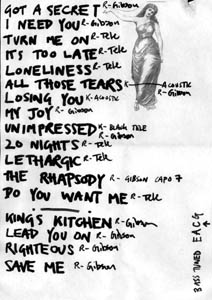 GOT A SECRET R-Gibson
I NEED YOU R-Gibson
TURN ME ON R-Tele
IT'S TOO LATE R-Tele
LONELINESS R-Tele
ALL THOSE TEARS K-ACOUSTIC R-Gibson
LOSING YOU K-ACOUSTIC
MY JOY R-Gibson
UNIMPRESSED K-BLACK TELE R-Gibson
20 NIGHTS R-Tele
LETHARGIC R-Tele
THE RHAPSODY R-GIBSON CAPO 7
DO YOU WANT ME R-Tele
KING'S KITCHEN R-Gibson
LEAD YOU ON R-Gibson
RIGHTEOUS R-Gibson
SAVE ME R-Gibson
BASS TUNED E A C G